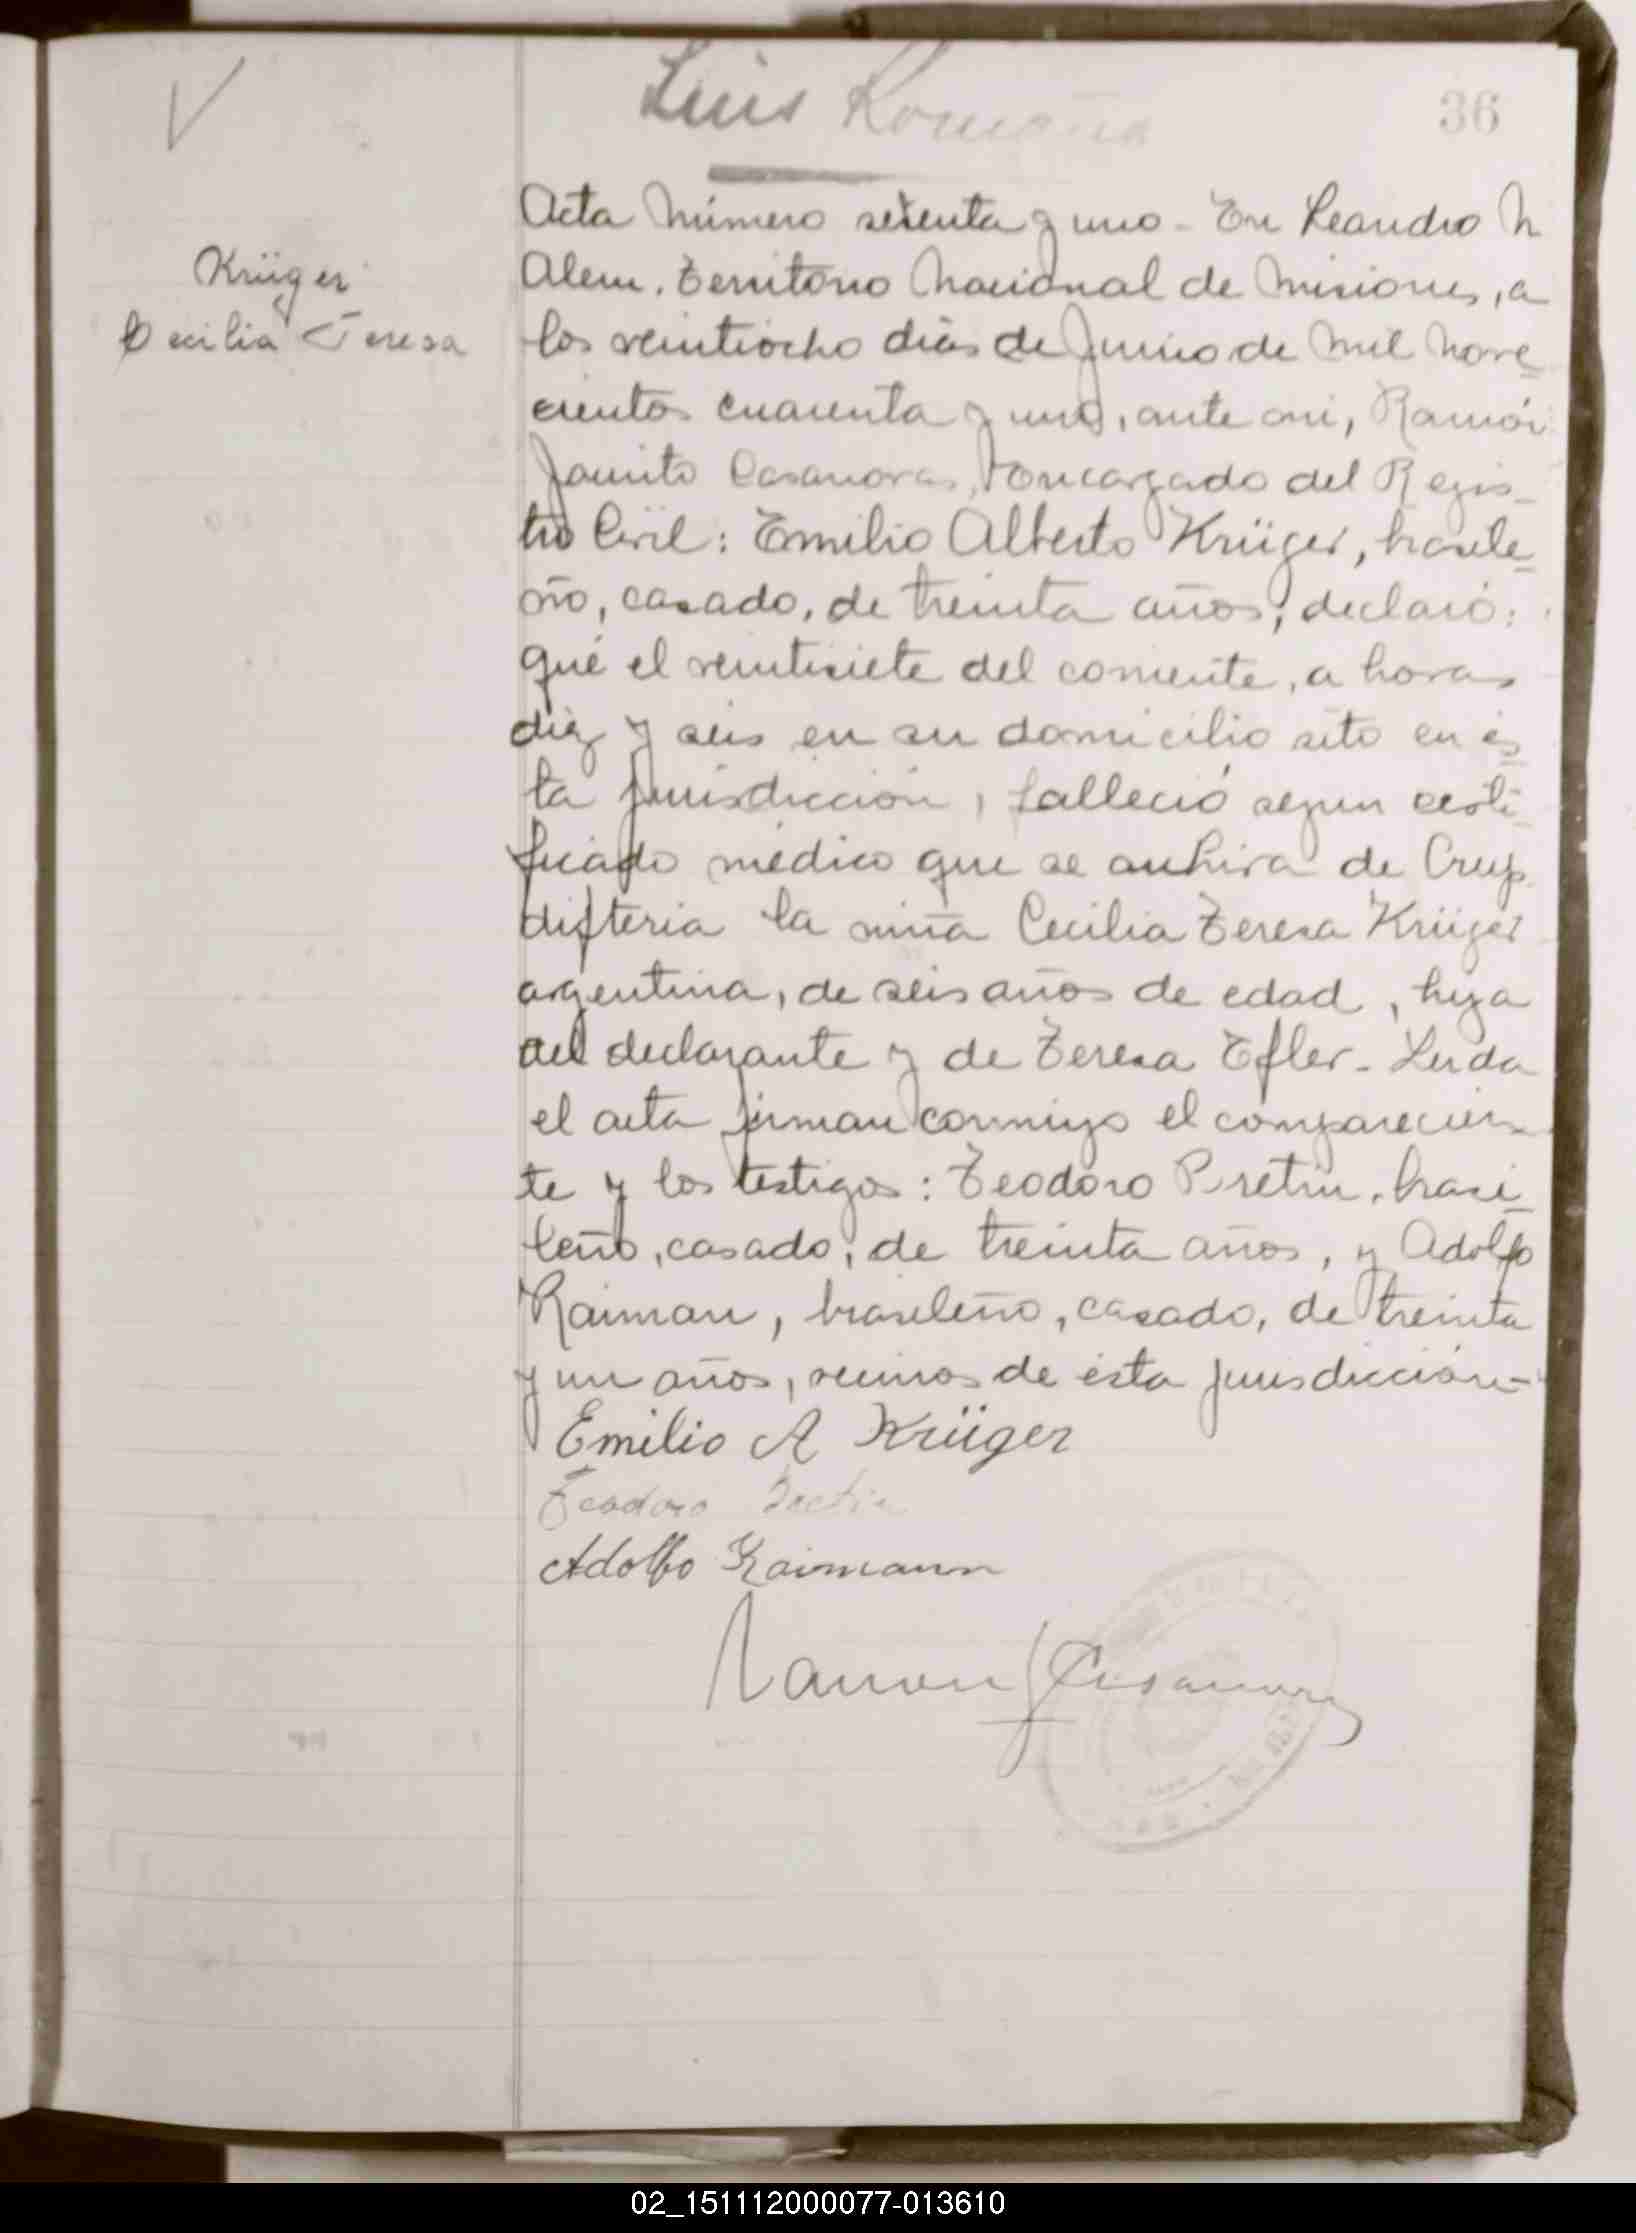 Luis Romaña
36
Krüger
Cecilia Teresa
Acta Número setenta y uno - En Leandro N
Alem, Territorio Nacional de Misiones, a
los veintiocho días de Junio de Mil Nove
cientos cuarenta y uno, ante mi, Ramón
Jacinto Casanovas, Encargado del Regis-
tro Civil: Emilio Alberto Krüger, brasile
ño, casado, de treinta años, declaró:
qué el veintisiete del corriente, a horas
diez y seis en su domicilio sito en és
ta jurisdicción, falleció segun certi-
ficado médico que se archiva de Crup
difteria la niña Cecilia Teresa Krüger
argentina, de seis años de edad, hija
del declarante y de Teresa Efler - Leida
el acta firman conmigo el comparecien-
te y los testigos: Teodoro Pretin, brasi
leño, casado, de treinta años, y Adolfo
Raiman, brasileño, casado, de treinta
y un años, vecinos de ésta jurisdicción-
Emilio A Krüger
Teodoro
Adolfo Raimann
Ramon J Casanovas
02_151112000077-013610